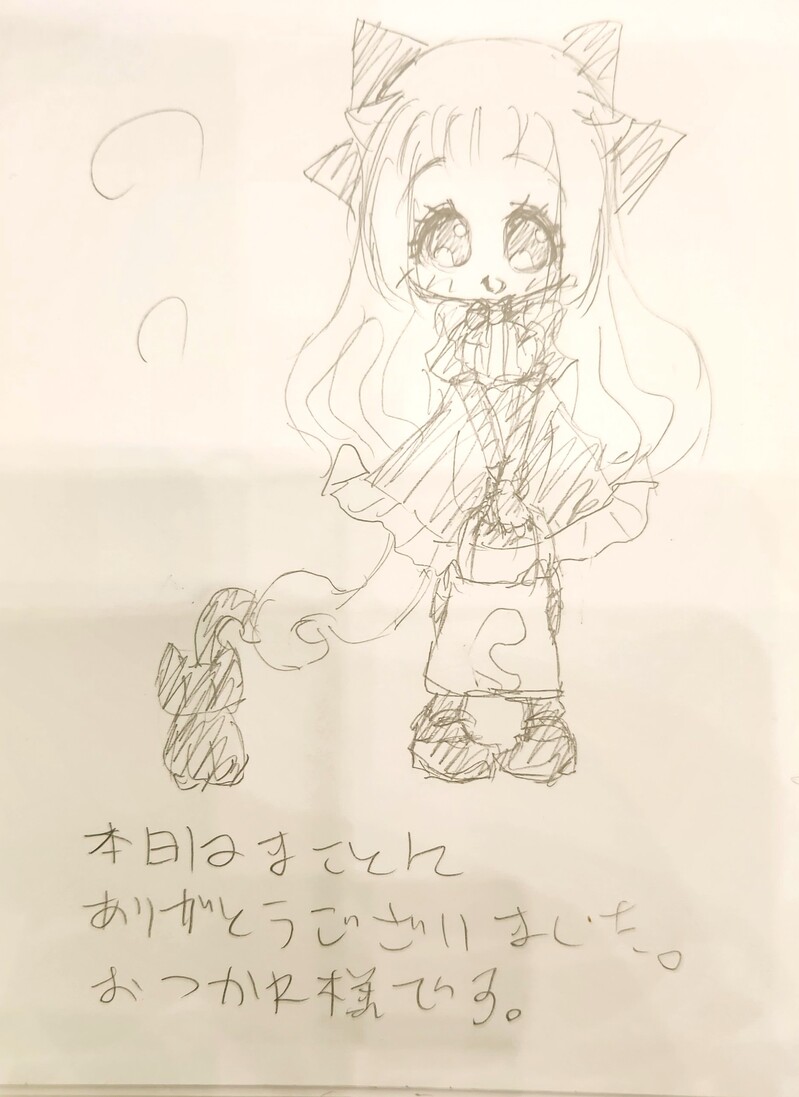 本日はまことに
ありがとうございました。
おつかれ様です。